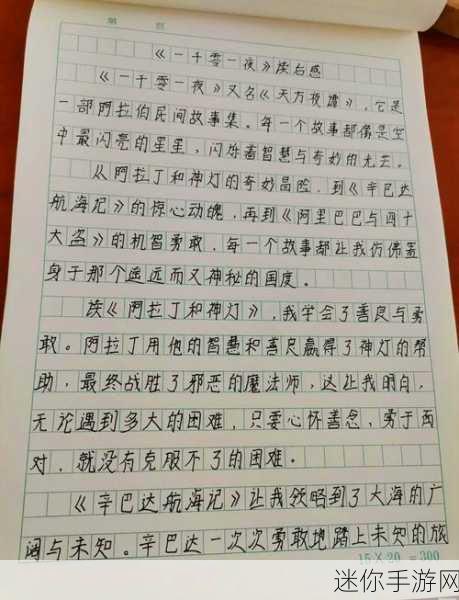 第 页
《一千零一夜》读后感
《一千零一夜》又名《天方夜谭》，它是
一部阿拉伯民间故事集。每一个故事都像是空
中最闪亮的星星，闪烁着智慧与奇妙的光芒。
从阿拉丁和神灯的奇妙冒险，到《辛巴达
航海记》的惊心动魄，再到《阿里巴巴与四十
大盗》的机智勇敢，每一个故事都让我仿佛置
身于那个遥远而又神秘的国度。
读《阿拉丁和神灯》，我学会了善良与勇
敢。阿拉丁用他的智慧和善良赢得了神灯的帮
助，最终战胜了邪恶的魔法师，这让我明白，
无论遇到多大的困难，只要心怀善念，勇于面
对，就没有克服不了的困难。
《辛巴达航海记》让我领略到了大海的广
阔与未知。辛巴达一次次勇敢地踏上未知的旅
15×20=300
迷你手游网